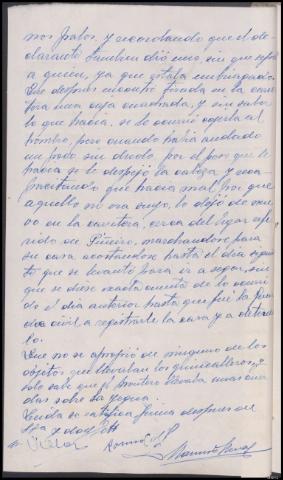 nos palos, y recordando que el de-
clarante tambien dió uno, sin que sepa
a quien, ya que estaba embriagado.
Que despues encontró tirada en la carre-
tera una caja cuadrada, y sin saber
lo que hacia se le ocurrió cogerla al
hombro, pero cuando habia andado
un poco sin duda, por el peso que le
hacia se le despejó la cabeza y com-
prendiendo que hacia mal por que
aquello no era suyo, lo dejó de nue-
vo en la carretera, cerca del lugar refe-
rido de Piñeiro, marchandose para
su casa acostandose hasta el dia siguien-
te que se levantó para ir a segar, sin
que se diese exacta cuenta de lo ocurri-
do el dia anterior hasta que fué la Guar-
dia civil a registrarle la casa y a detener-
lo.
Que no se apropió de ninguno de los
objetos que llevaban los quincalleros, y
solo sabe que el llevaba unas
sobre la
Leida se ratifica firma despues de
S.Sª y doy fe